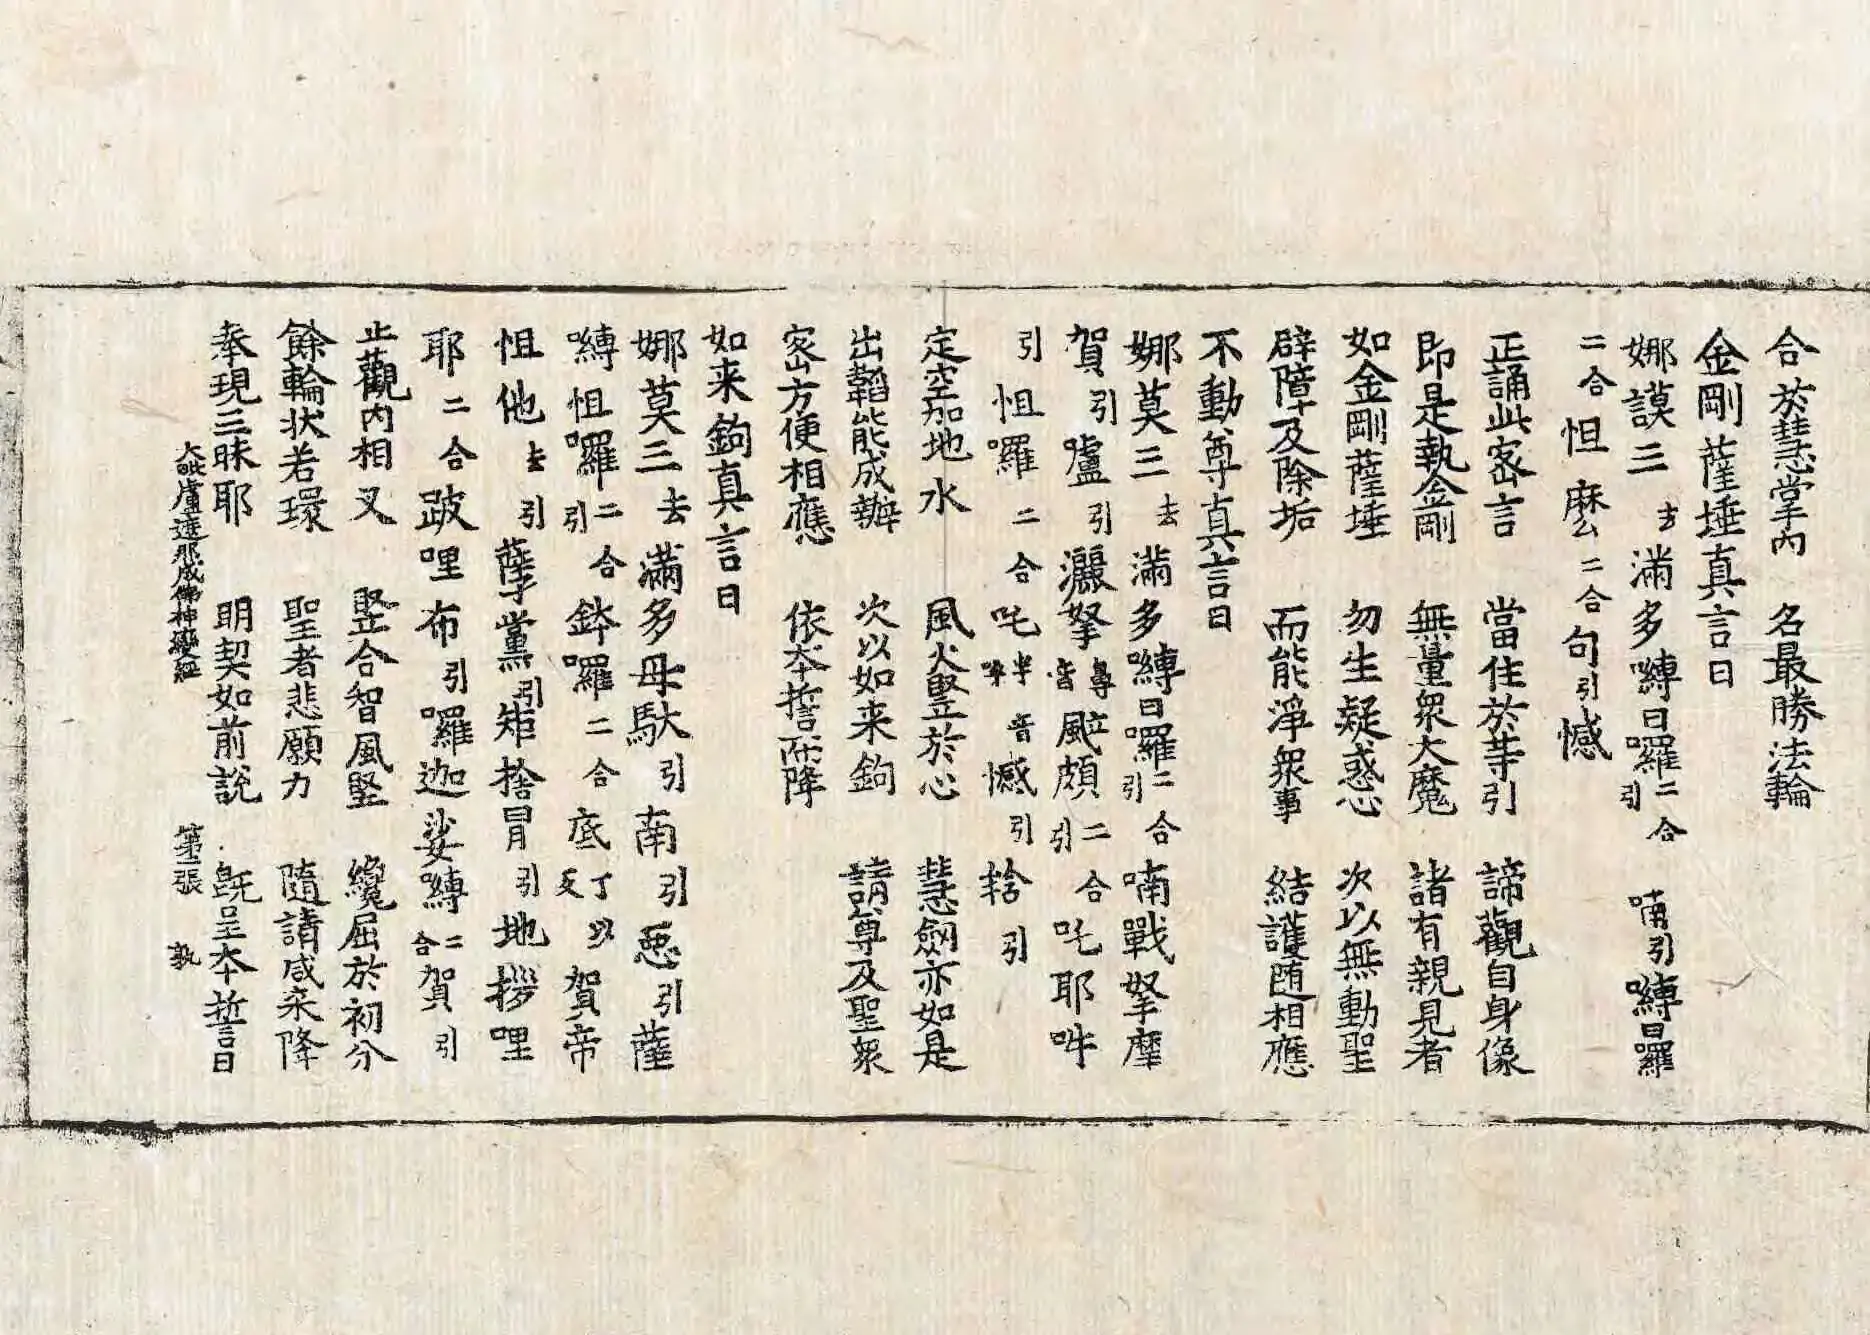 合於慧掌內　名最勝法輪
金剛薩埵真言曰
娜謨三去滿多嚩日囉二合引喃引嚩日羅
二合怛麼二合句引憾
正誦此密言　當住於等引　諦觀自身像
即是執金剛　無量衆大魔　諸有親見者
如金剛薩埵　勿生疑惑心　次以無動聖
辟障及除垢　而能淨衆事　結護隨相應
不動尊真言曰
娜莫三去滿多嚩日囉二合引喃戰拏摩
賀引嚧引灑拏尊立音颯頗二合引吒耶吽
引怛羅二合吒半音憾引牟含引
定空加地水　風火竪於心　慧劔亦如是
出韜能成辦　次以如来鉤　請尊及聖衆
密方便相應　依本誓而降
如来鉤真言曰
娜莫三去滿多母馱引南引惡引薩
嚩怛囉二合引鉢囉二合底丁以反賀帝
怛他去引孽黨引矩捨冒引地拶哩
耶二合跛哩布引囉迦娑嚩二合賀引
止觀內相叉　竪合智風竪　纔屈於初分
餘輪状若環　聖者悲願力　隨請咸来降
奉現三昧耶　明契如前說　既呈本誓曰
大毗盧遮那成佛神變經　第二張　孰